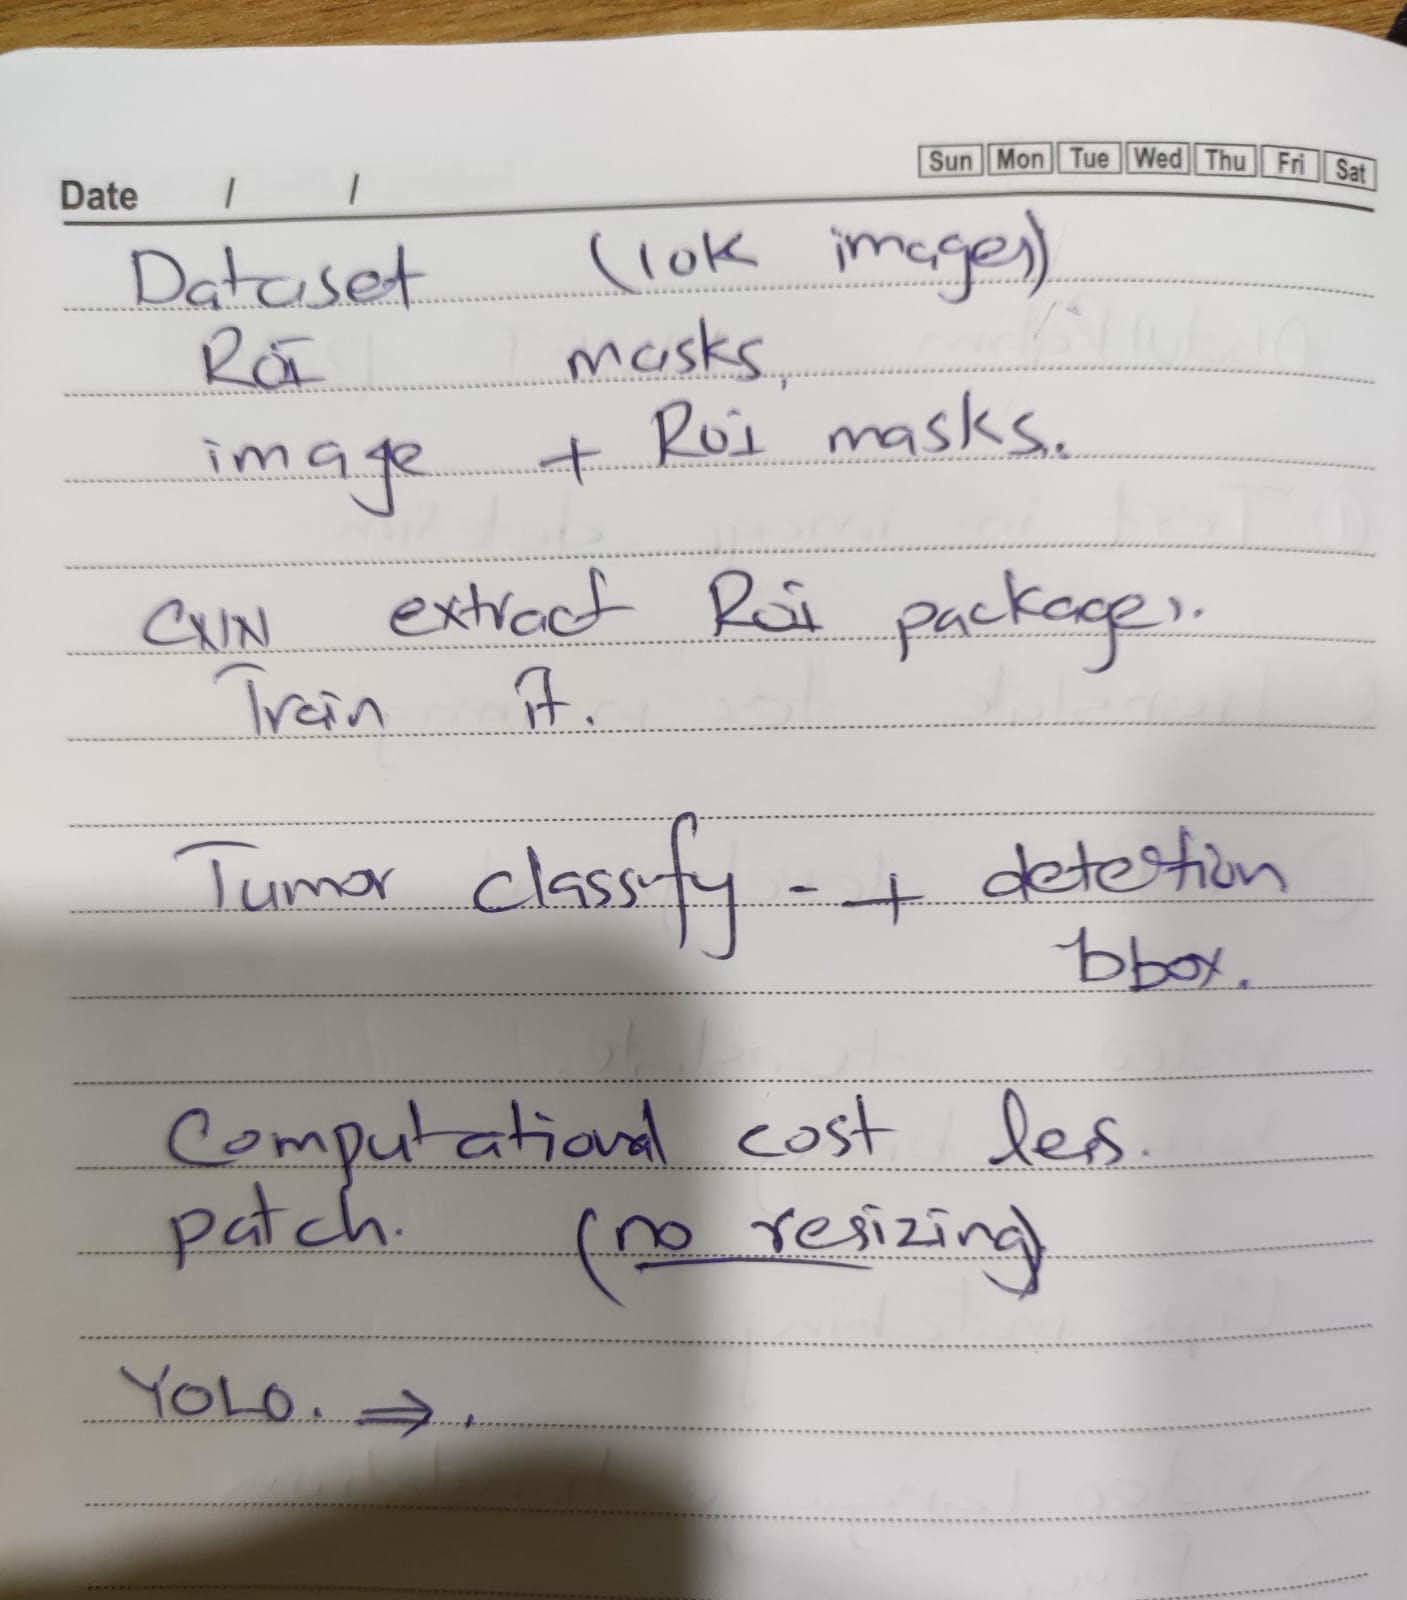 Sun Mon Tue Wed Thu Fri Sat
Date / /
Dataset (10K images)
ROI masks,
image + ROI masks.
CNN extract ROI packages.
Train it.
Tumor classify - + detection
bbox.
Computational cost less.
patch. (no resizing)
YOLO. ⇒ .